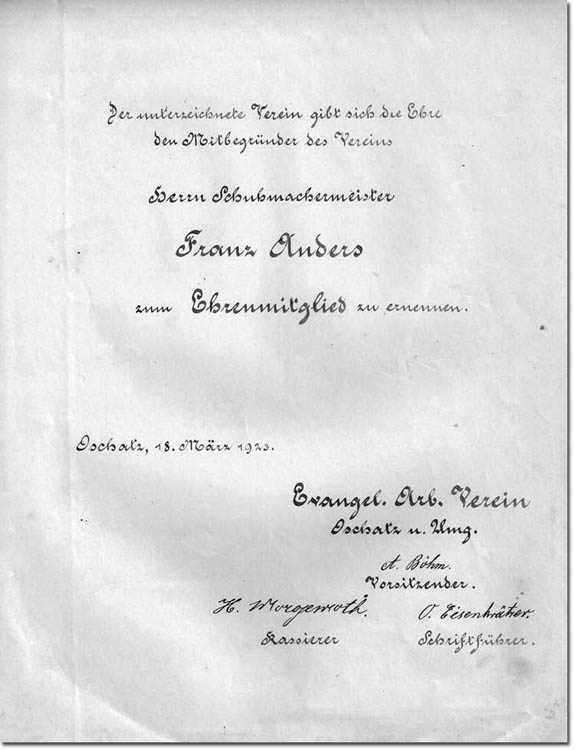 Der unterzeichnete Verein gibt sich die Ehre
den Mitbegründer des Vereins
Herrn Schuhmachermeister
Franz Anders
zum Ehrenmitglied zu ernennen.
Oschatz, 18. März 1923.
Evangel. Arb. Verein
Oschatz u. Umg.
A. Böhm.
Vorsitzender.
H. Morgenroth. O.
Kassierer Schriftführer.